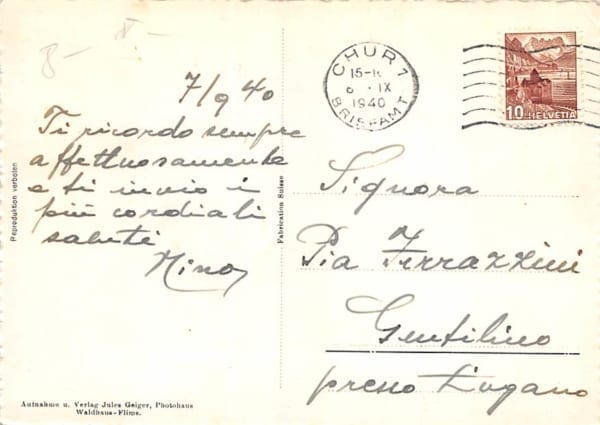 8- X-
7/9 40
Ti ricordo sempre
affettuosamente
e ti invio i
più cordiali
saluti
Nino
Reproduktion verboten
Fabrication Suisse
CHUR 1
15-1
6 . IX
1940
BRIEFAMT
10 HELVETIA
Signora
Pia Ferrazzini
Gentilino
presso Lugano
Aufnahme u. Verlag Jules Geiger, Photohaus
Waldhaus-Flims.